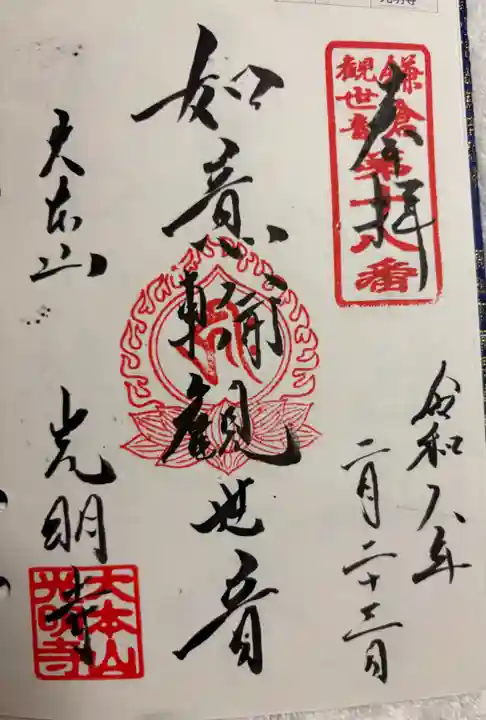 奉拝
鎌倉
観世音
第十八番
令和八年
二月二十三日
如意輪観世音
大本山
光明寺
大本山
光明寺